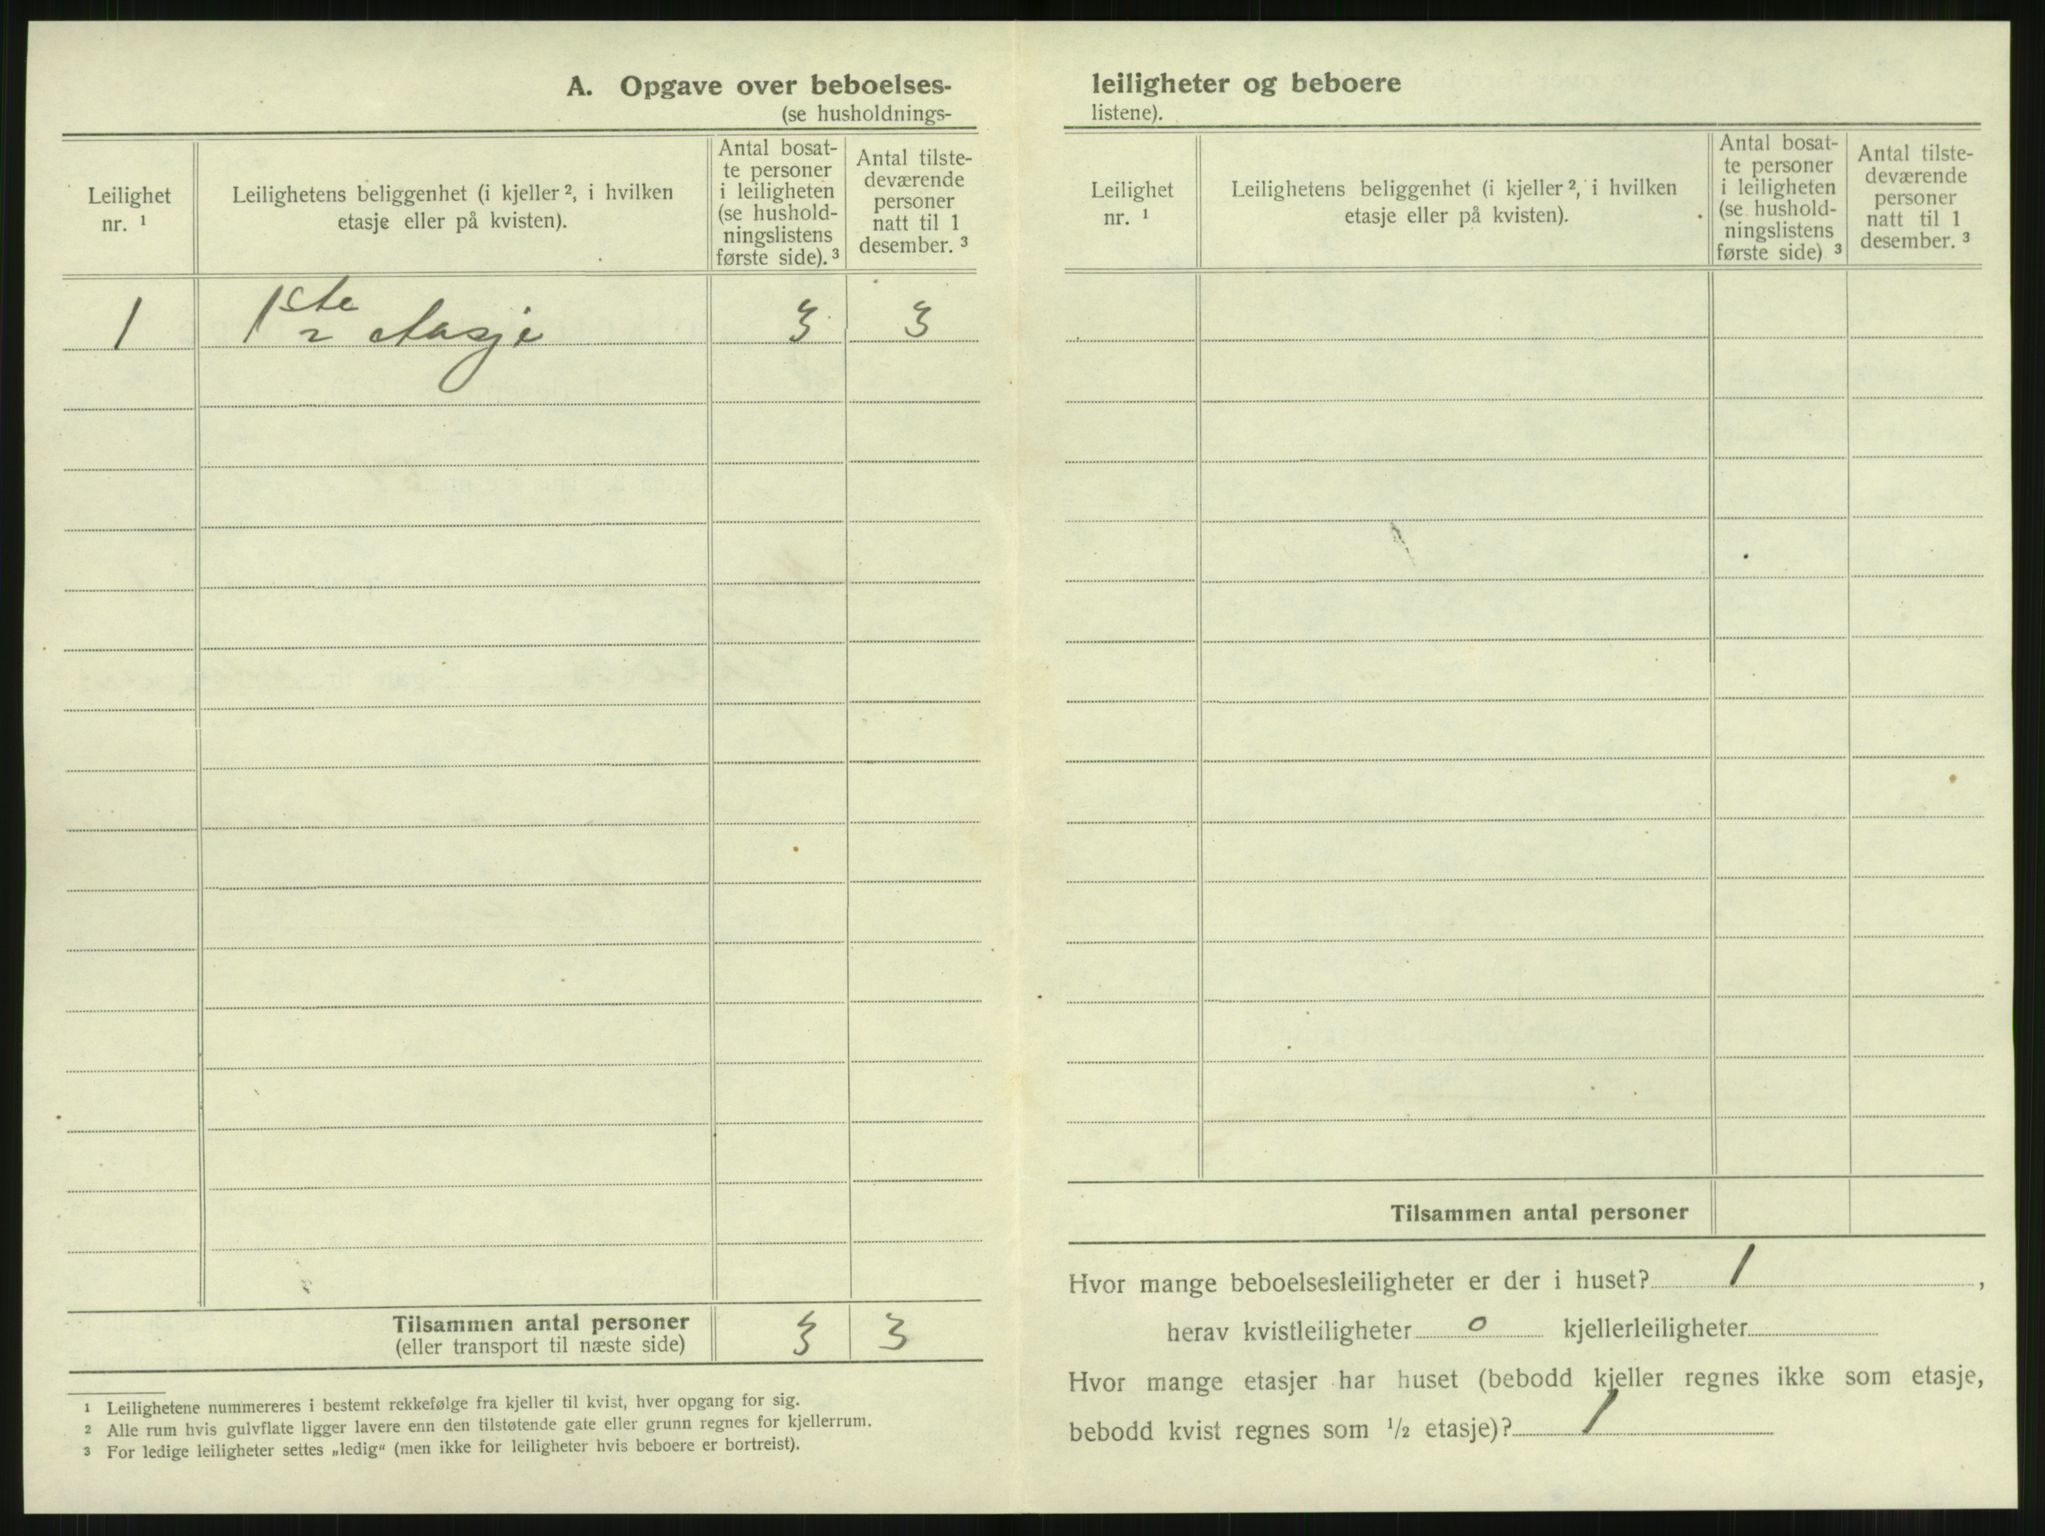 A. Opgave over beboelses-
(se husholdnings-
Leilighet
nr. ¹
Leilighetens beliggenhet (i kjeller ², i hvilken
etasje eller på kvisten).
Antal bosat-
te personer
i leiligheten
(se hushold-
ningslistens
første side). ³
Antal tilste-
deværende
personer
natt til 1
desember. ³
1 1ste etasje 3 3
Tilsammen antal personer 3 3
(eller transport til næste side)
¹ Leilighetene nummereres i bestemt rekkefølge fra kjeller til kvist, hver opgang for sig.
² Alle rum hvis gulvflate ligger lavere enn den tilstøtende gate eller grunn regnes for kjellerrum.
³ For ledige leiligheter settes „ledig“ (men ikke for leiligheter hvis beboere er bortreist).
leiligheter og beboere
listene).
Leilighet
nr. ¹
Leilighetens beliggenhet (i kjeller ², i hvilken
etasje eller på kvisten).
Antal bosat-
te personer
i leiligheten
(se hushold-
ningslistens
første side) ³
Antal tilste-
deværende
personer
natt til 1
desember. ³
Tilsammen antal personer
Hvor mange beboelsesleiligheter er der i huset? 1 ,
herav kvistleiligheter 0 kjellerleiligheter
Hvor mange etasjer har huset (bebodd kjeller regnes ikke som etasje,
bebodd kvist regnes som ½ etasje)? 1